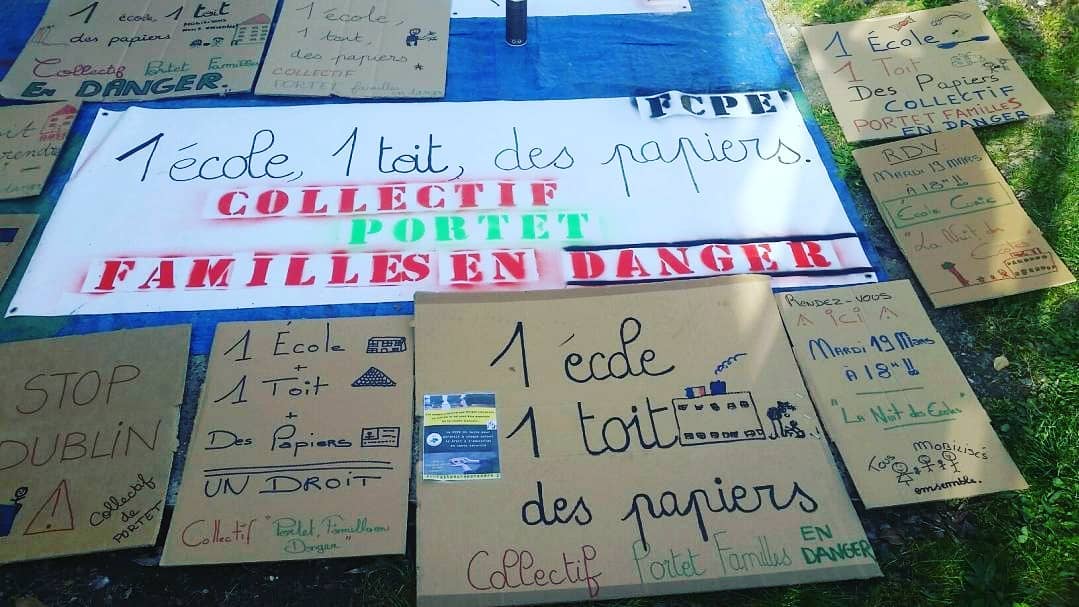 1 école, 1 toit
des papiers
Collectif Portet Familles
EN DANGER.
1 école,
1 toit,
des papiers
COLLECTIF
PORTET familles
en danger
1 École
1 Toit
Des Papiers
COLLECTIF
PORTET FAMILLES
EN DANGER
FCPE
1 école, 1 toit, des papiers.
COLLECTIF
PORTET
FAMILLES EN DANGER
RDV
MARDI 19 MARS
À 18H!!
École Cuvie
"La Nuit des
STOP
DUBLIN
Collectif
de
PORTET
1 École
+
1 Toit
+
Des Papiers
UN DROIT
Collectif "Portet, Familles en
Danger"
1 école
1 toit
des papiers
Collectif Portet Familles EN
DANGER
RENDEZ-VOUS
ICI
MARDI 19 MARS
À 18H!!
"La Nuit des Écoles"
Tous MOBILISÉS
ensemble.